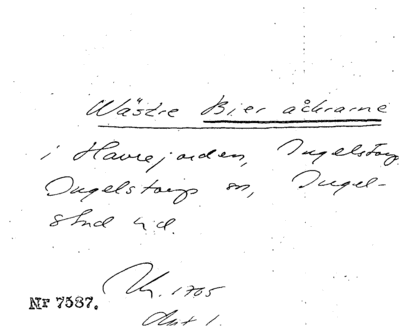 Wästre Bier åckrarne
i Havrejorden, Ingelstorp
Ingelstorps sn, Ingel-
stad hd.
1705
Nr 7587.
Akt 1.